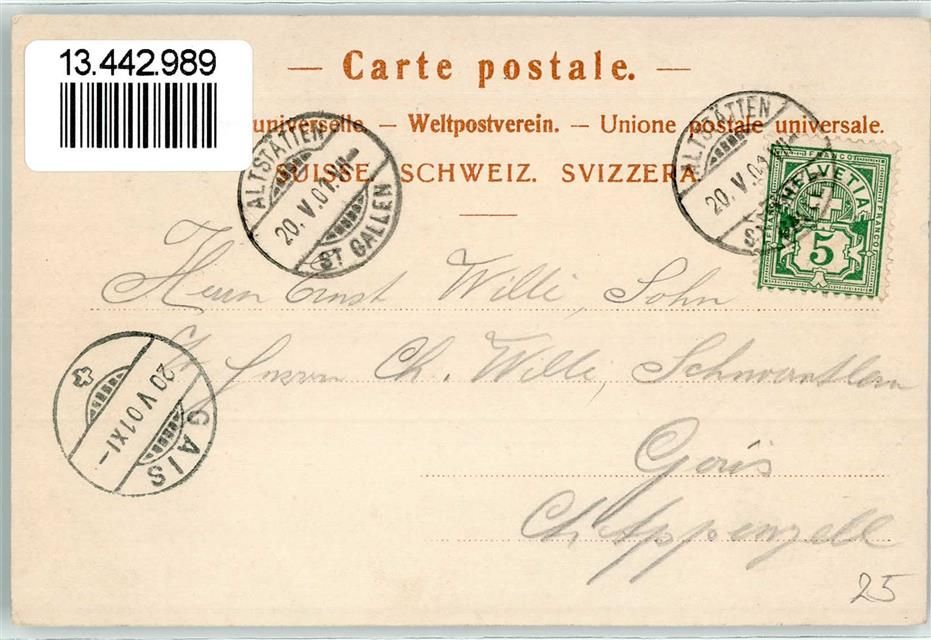 13.442.989
— Carte postale. —
universelle. — Weltpostverein. — Unione postale universale.
SUISSE. SCHWEIZ. SVIZZERA.
ALTSTÄTTEN
20.V.01.VII-
ST GALLEN
ALTSTÄTTEN
20.V.01.VII-
ST GALLEN
FRANCO
HELVETIA
FRANCO
FRANCO
5
Herrn Ernst Willi, Sohn
Herrn Ch. Willi,
Gais
Ct. Appenzell
20 V 01 XI-
GAIS
25